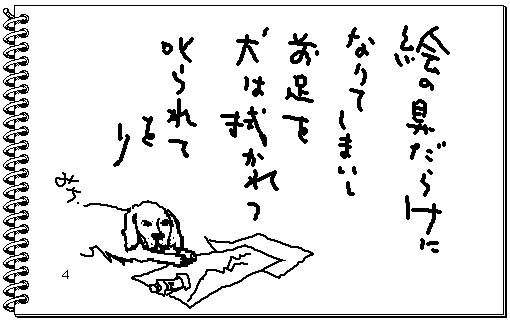 絵の具だらけに
なりてしまいし
お足を
犬は拭かれつ
叱られて
をり
みち.
4